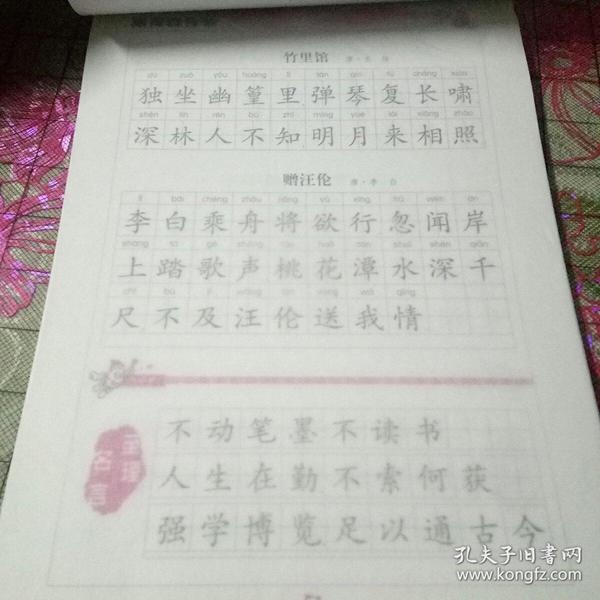 竹里馆 唐·王维
dú zuò yōu huáng lǐ tán qín fù cháng xiào
独坐幽篁里弹琴复长啸
shēn lín rén bù zhī míng yuè lái xiāng zhào
深林人不知明月来相照
赠汪伦 唐·李白
lǐ bái chéng zhōu jiāng yù xíng hū wén àn
李白乘舟将欲行忽闻岸
shàng tà gē shēng táo huā tán shuǐ shēn qiān
上踏歌声桃花潭水深千
chǐ bù jí wāng lún sòng wǒ qíng
尺不及汪伦送我情
至理名言
不动笔墨不读书
人生在勤不索何获
强学博览足以通古今
孔夫子旧书网
www.kongfz.com